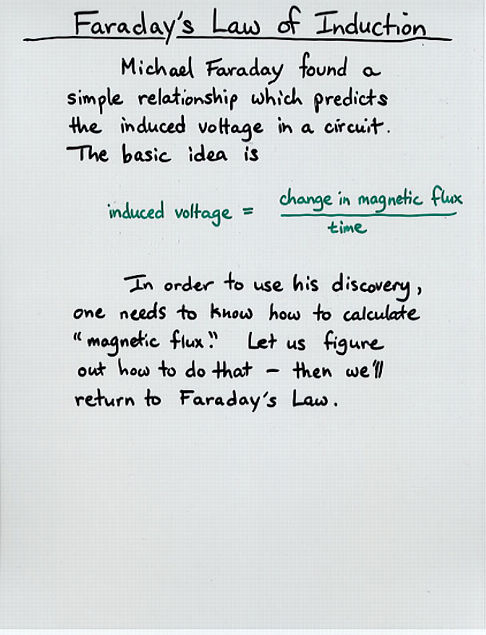 Faraday's Law of Induction
Michael Faraday found a
simple relationship which predicts
the induced voltage in a circuit.
The basic idea is
induced voltage = change in magnetic flux
time
In order to use his discovery,
one needs to know how to calculate
"magnetic flux." Let us figure
out how to do that - then we'll
return to Faraday's Law.